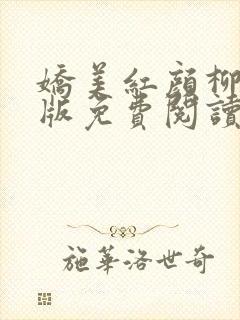 嬌美紅顏柳
版免費閱讀
施華洛世奇